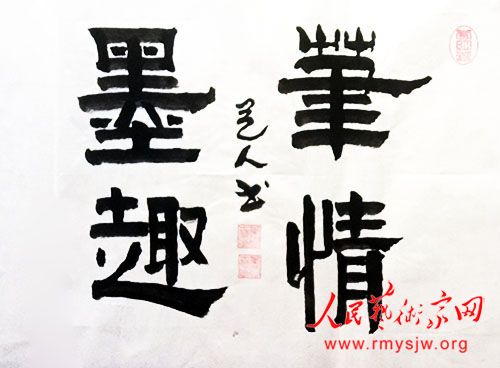 筆情
墨趣
人书
人民藝術家网
www.rmysjw.org